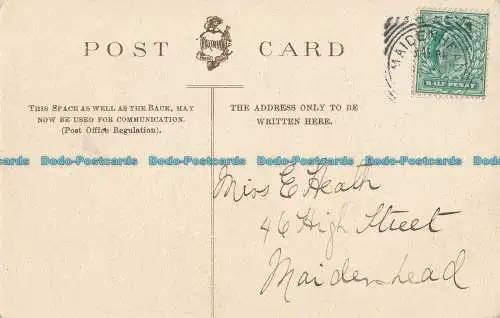 POST CARD
THIS SPACE AS WELL AS THE BACK, MAY
NOW BE USED FOR COMMUNICATION.
(Post Office Regulation).
THE ADDRESS ONLY TO BE
WRITTEN HERE.
HALF PENNY
Dodo-Postcards Dodo-Postcards Dodo-Postcards Dodo-Postcards Dodo-Postcards
Miss E Heath
46 High Street
Maidenhead